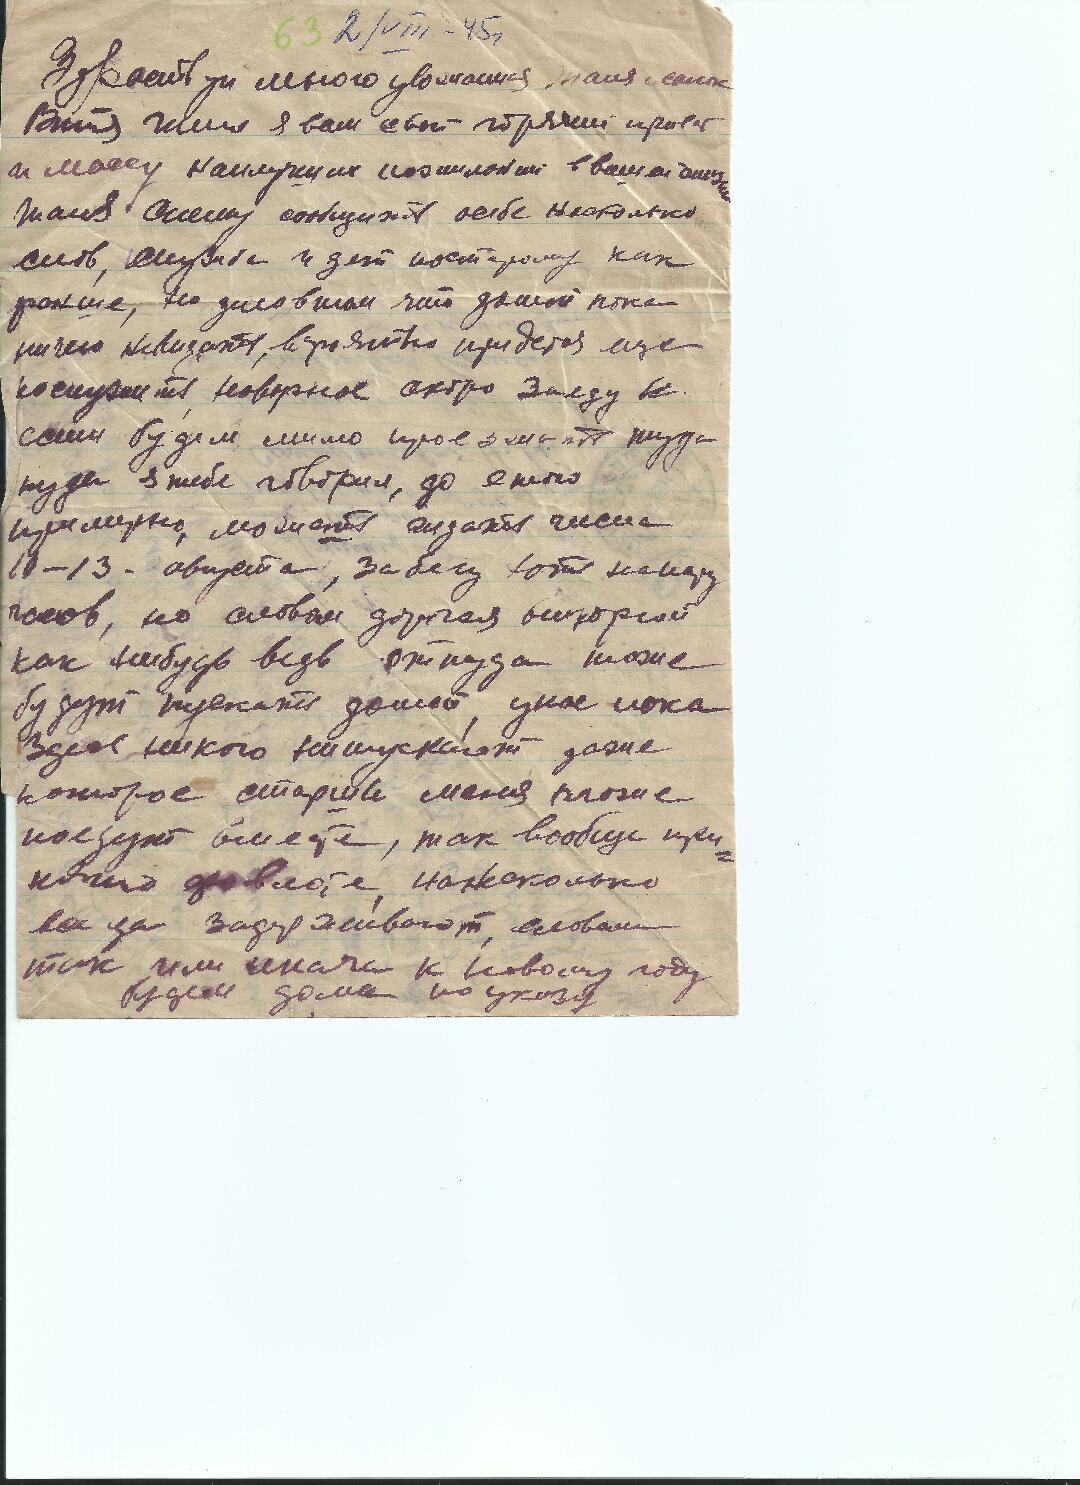 63 2/VIII-45г
Здраствуй много уважаемая Таня и сынок
Витя шлю я вам свой горячий привет
и массу наилучших пожеланий в вашей жизни
Таня спешу сообщить о себе несколько
слов, служба идет постарому как
раньше, но дело в том что домой пока
ничего невидать, вероятно придется еще
послужить, наверное скоро заеду к
если будем мимо проезжать туда
куда я тебе говорил, до этого
примерно, может ждать числа
10-13- августа, забегу хотя на пару
часов, но словом дорогая
как нибудь ведь оттуда тоже
будут пускать домой, унас пока
здесь никого нипускают даже
которые старше меня тоже
поедут вместе, так вообще при=
на несколько
всегда задерживают, словом
так или иначе к новому году
будем дома по указу